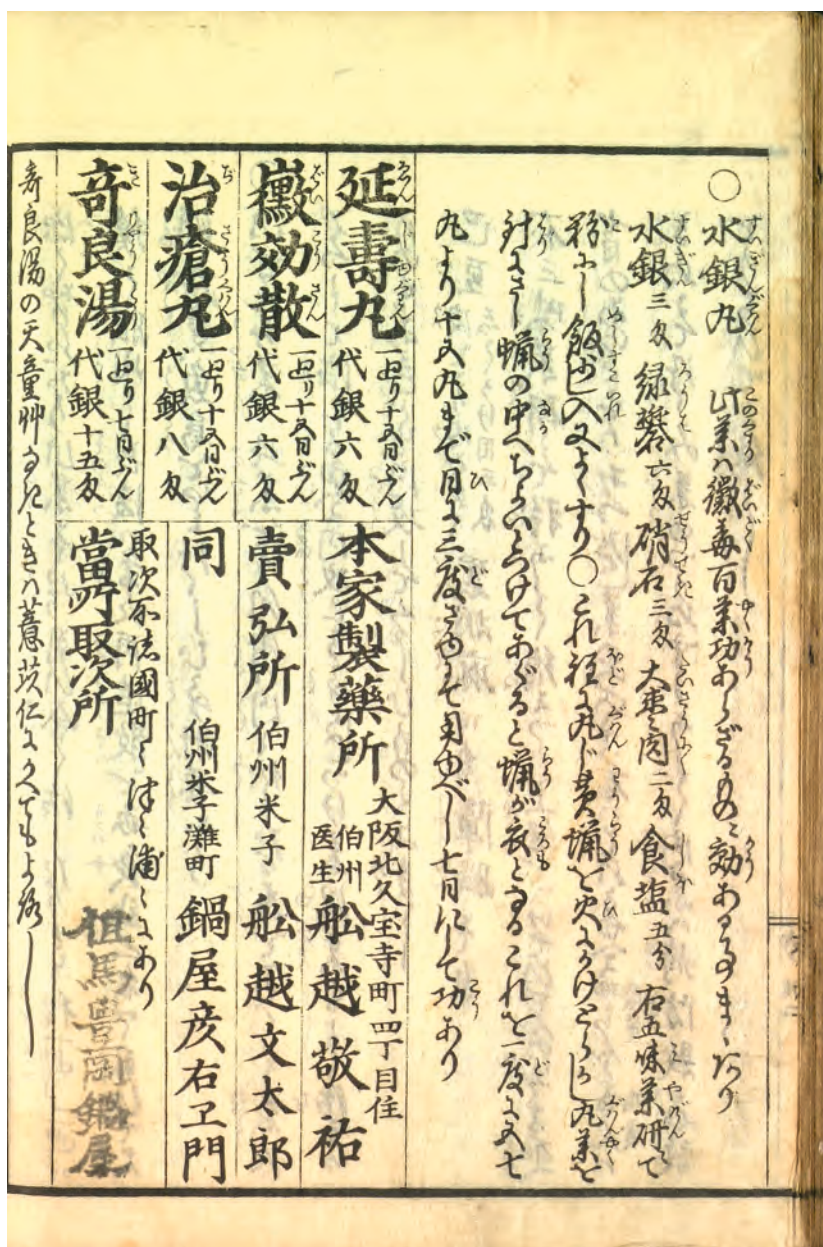 ○水銀丸 此薬ハ黴毒百薬功あらざるものに効ある事まゝあり
水銀三匁 緑礬六匁 硝石三匁 大棗肉二匁 食塩五分 右五味薬研にて
粉にし飯少し入又よくすり○これ程に丸じ黄蝋を火にかけとらかし丸薬を
針にさし蝋の中へちよいとつけてあぐると蝋が衣となるこれを一度に五七
丸より十五丸まで日に三度さゆにて用ゆべし七日にして功あり
延壽丸 一廻り十五日ぶん 代銀六匁
黴効散 一廻り十五日ぶん 代銀六匁
治瘡丸 一廻り十五日ぶん 代銀八匁
竒良湯 一廻り七日ぶん 代銀十五匁
本家製藥所 大阪北久宝寺町四丁目住 伯州医生 舩越敬祐
賣弘所 伯州米子 舩越文太郎
同 伯州米子灘町 鍋屋彦右ヱ門
取次所諸國町々津々浦々にあり
當町取次所 但馬豊岡鍋屋
竒良湯の天童艸なきときハ薏苡仁にかへてもよろし